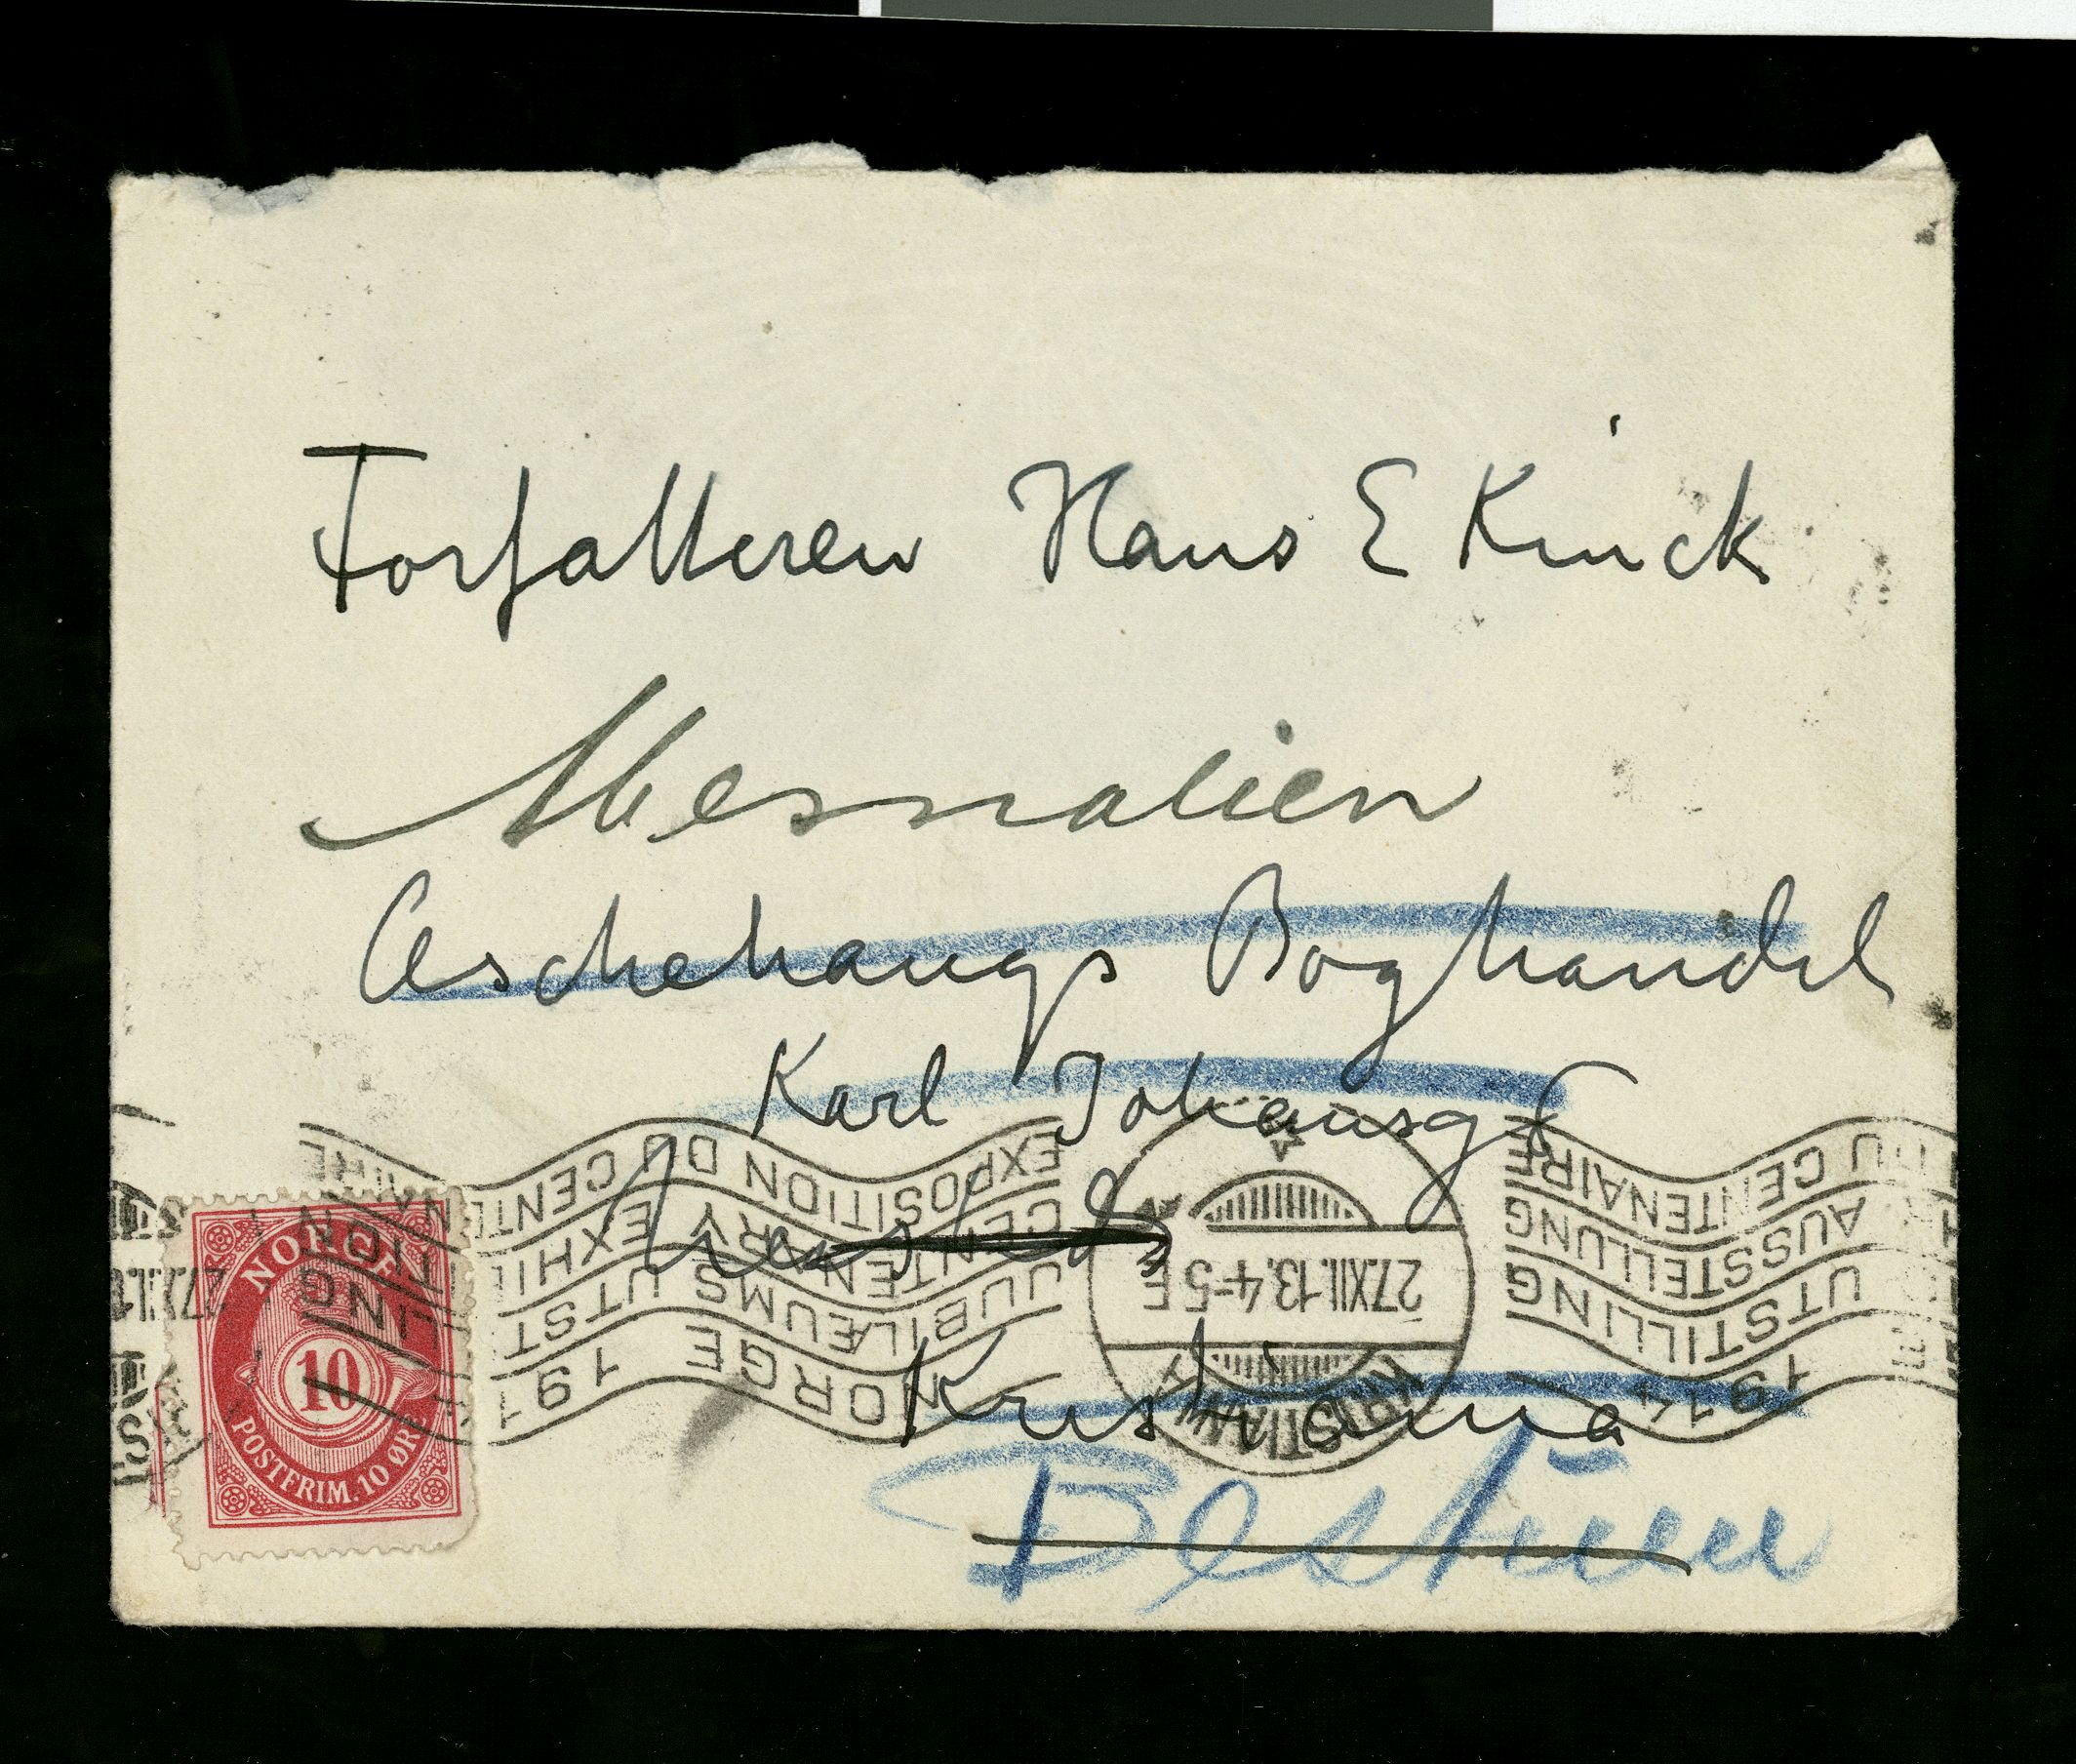 Forfatteren Hans E Kinck
Mesnalien
Aschehaugs Boghandel
Karl Johansg
Kristiania
Bestum
NORGE
10
POSTFRIM. 10 ØRE
EXPOSITION DU CENTENAIRE
CENTENARY EXHIBITION
JUBILÆUMS UTSTILLING
NORGE 1914
KRISTIANIA
27.XII.13.4-5 E
DU CENTENAIRE
AUSSTELLUNG
UTSTILLING
1914